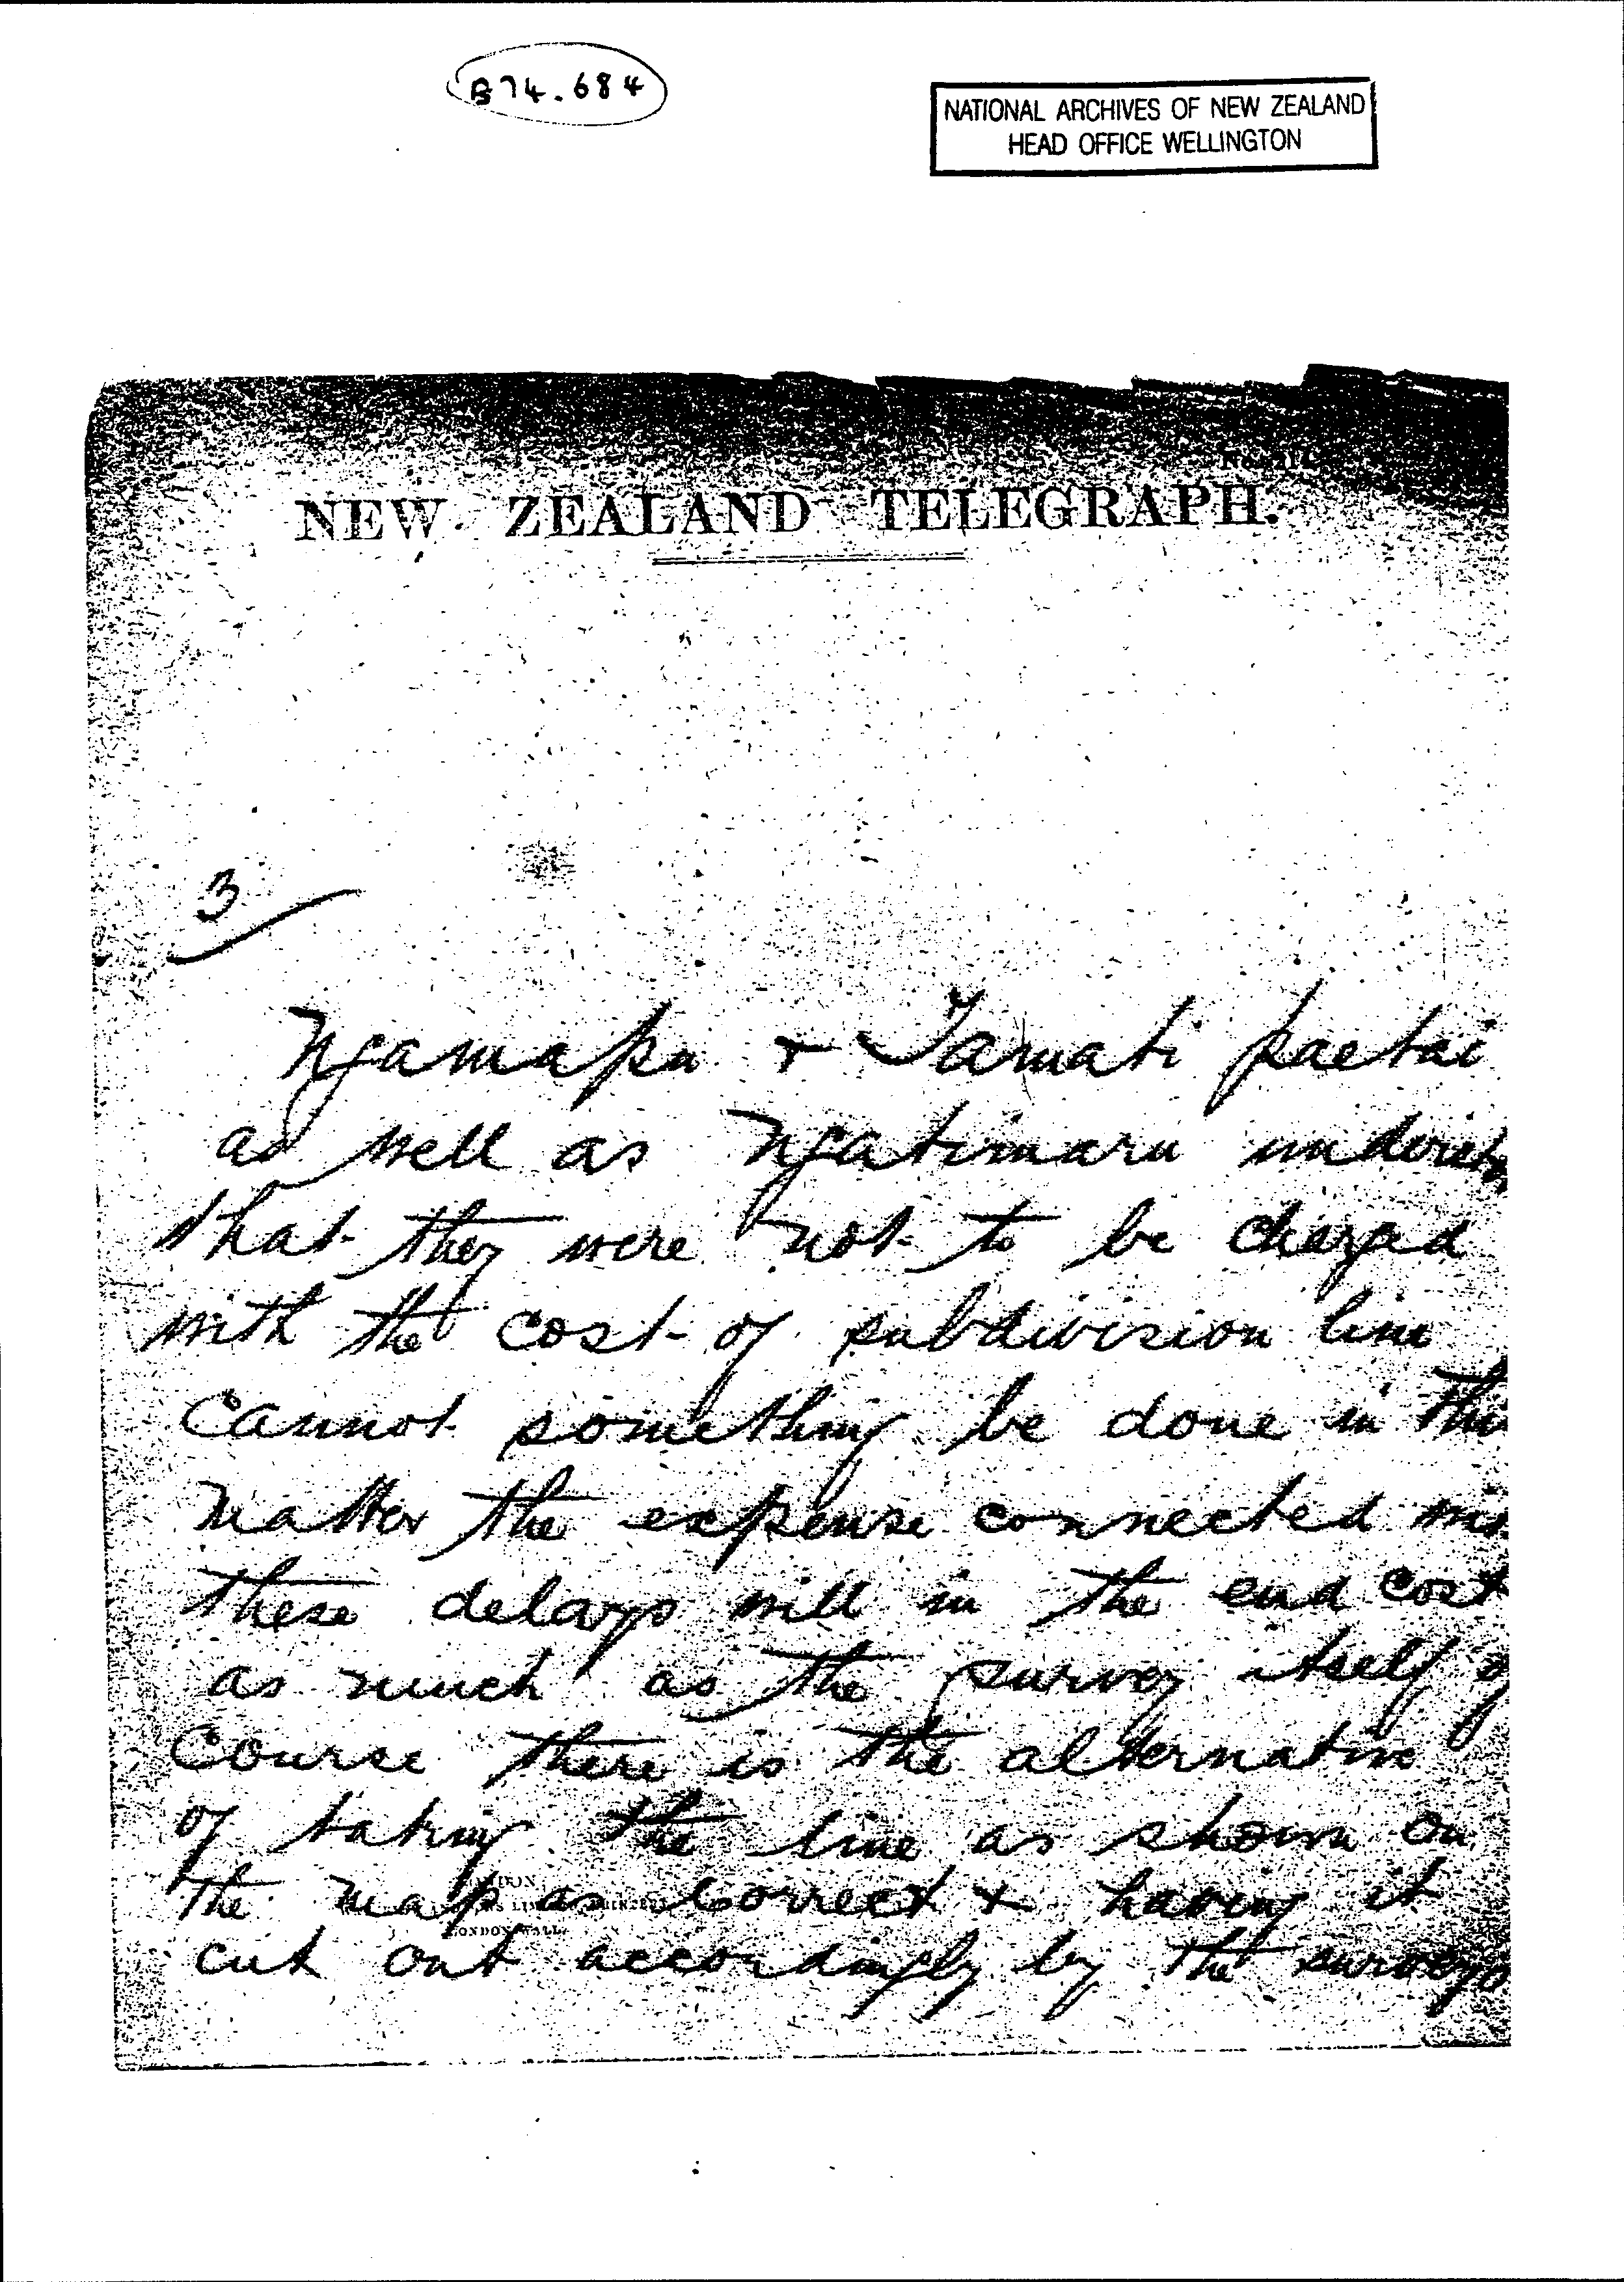 B74.684
NATIONAL ARCHIVES OF NEW ZEALAND
HEAD OFFICE WELLINGTON
NEW ZEALAND TELEGRAPH.
3
Ngamapu + Tamati paetai
as well as Ngatimaru
that they were not to be charged
with the cost of subdivision line
Cannot something be done in
matter the expense connected
these delays will in the end cost
as much as the survey itself of
Course there is the alternative
of taking the line as shown on
the map as correct + having it
cut out accordingly by the
LONDON WALL